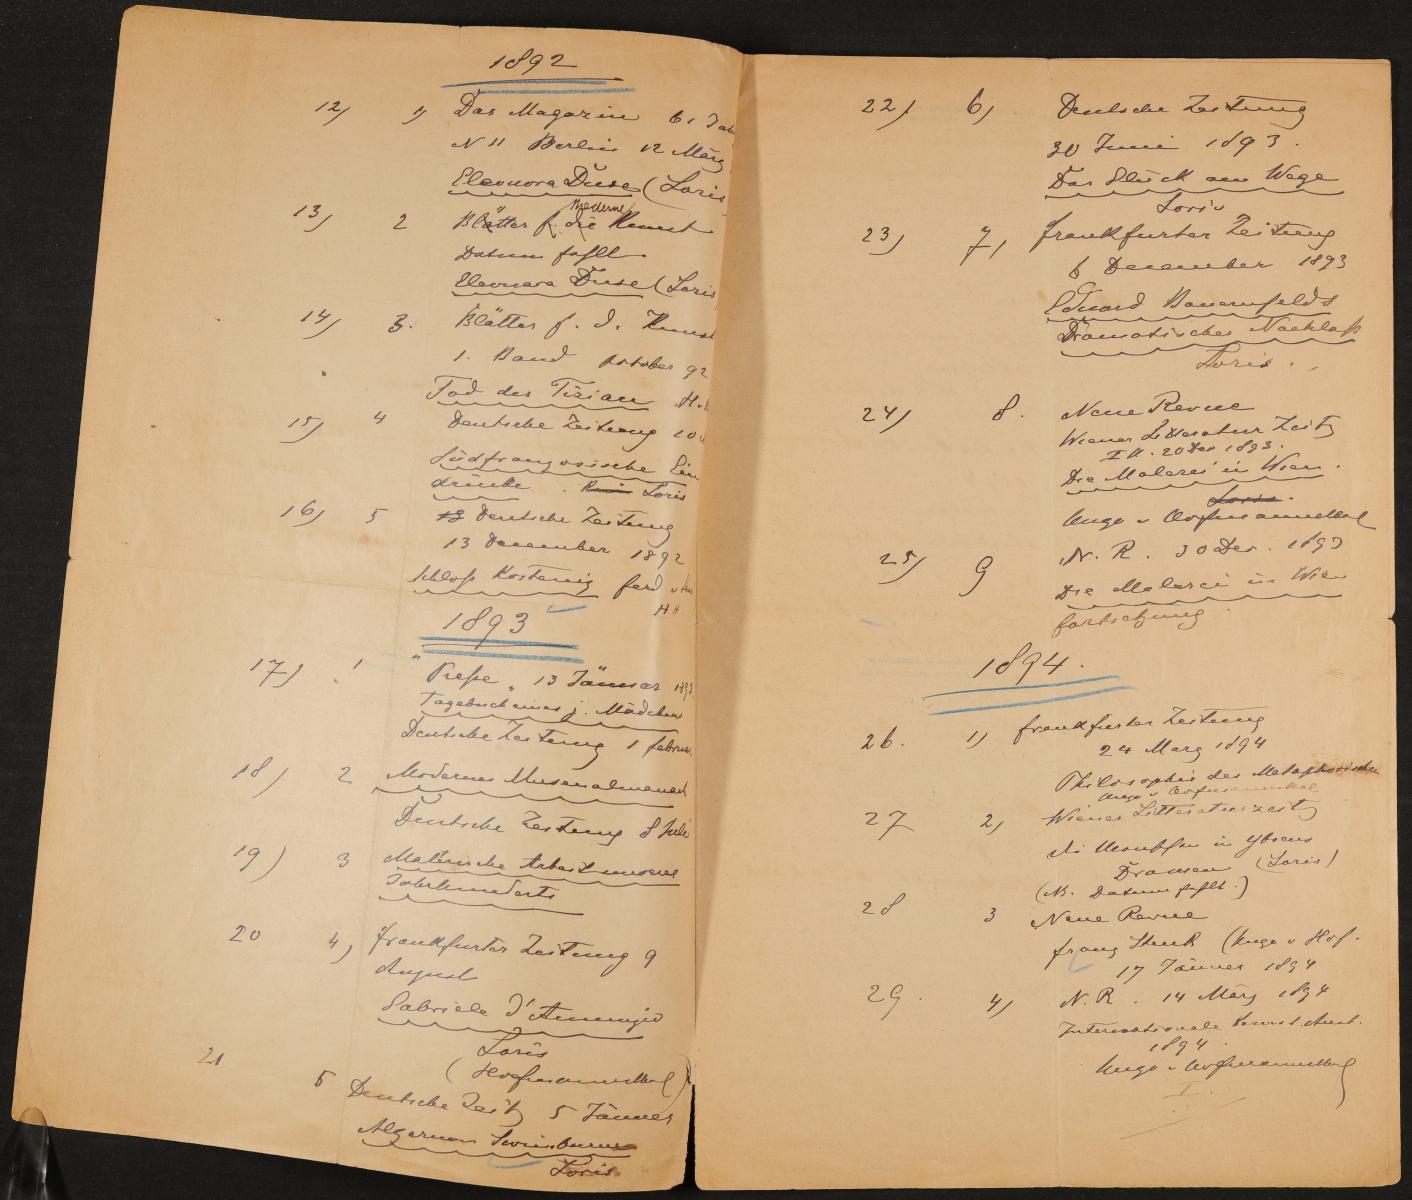 1892
12) 1) Das Magazin 61 Jah
N 11 Berlin 12 März
Eleonora Duse (Loris
moderne
13) 2 Blätter f. die Kunst
Datum fehlt
Eleonora Duse (Loris
14) 3. Blätter f. d. Kunst
1. Band October 92
Tod des Tizian H.
15) 4 Deutsche Zeitung 10
Südfranzösische Ein
drücke. Loris
16) 5 Deutsche Zeitung
13 December 1892
Schloß Kostenitz Ferd v
HH.
1893
17) 1 "Presse" 13 Jänner 1893
Tagebuch eines j. Mädchen
Deutsche Zeitung 1 Februar
18) 2 Modernes Musenalmanach
Deutsche Zeitung 8 Juli
19) 3 Malerische Arbeit unseres
Jahrhunderts
20 4) Frankfurter Zeitung 9
August
Gabriele d'Annunzio
Loris
(Hofmannsthal)
21 5 Deutsche Zeitg 5 Jänner
Algernon Swinburne
Loris
22) 6) Deutsche Zeitung
30 Juni 1893.
Das Glück am Wege
Loris
23) 7) Frankfurter Zeitung
6 December 1893
Eduard Bauernfelds
Dramatischer Nachlaß
Loris.
24) 8. Neue Revue
Wiener Litteratur Zeitg
20 Dez 1893.
Die Malerei in Wien.
Loris.
Hugo v Hofmannsthal
25) 9 N. R. 30 Dez. 1893
Die Malerei in Wien
Fortsetzung
1894.
26. 1) Frankfurter Zeitung
24 März 1894
Philosophie des Metaphorischen
Hugo v Hofmannsthal
27 2) Wiener Litteraturzeitg
Die Menschen in Ybsens
Dramen (Loris)
(NB. Datum fehlt.)
28 3 Neue Revue
Franz Stuck (Hugo v Hof.
17 Jänner 1894
29. 4) N. R. 14 März 1894
Internationale Kunst Aust.
1894.
Hugo v Hofmannsthal
I.